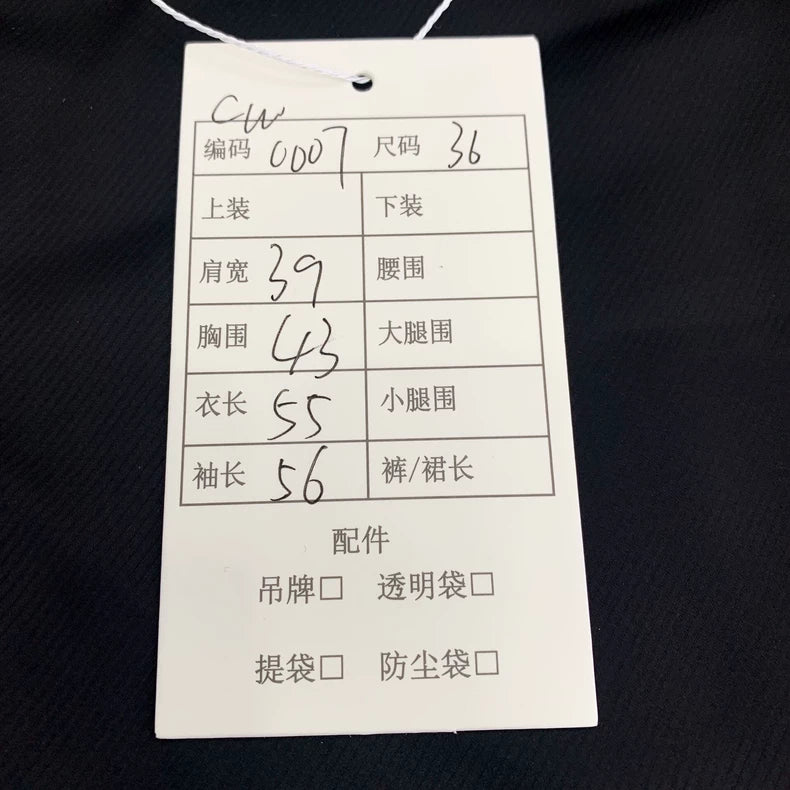 CW
编码 0007 尺码 36
上装 下装
肩宽 39 腰围
胸围 43 大腿围
衣长 55 小腿围
袖长 56 裤/裙长
配件
吊牌□ 透明袋□
提袋□ 防尘袋□